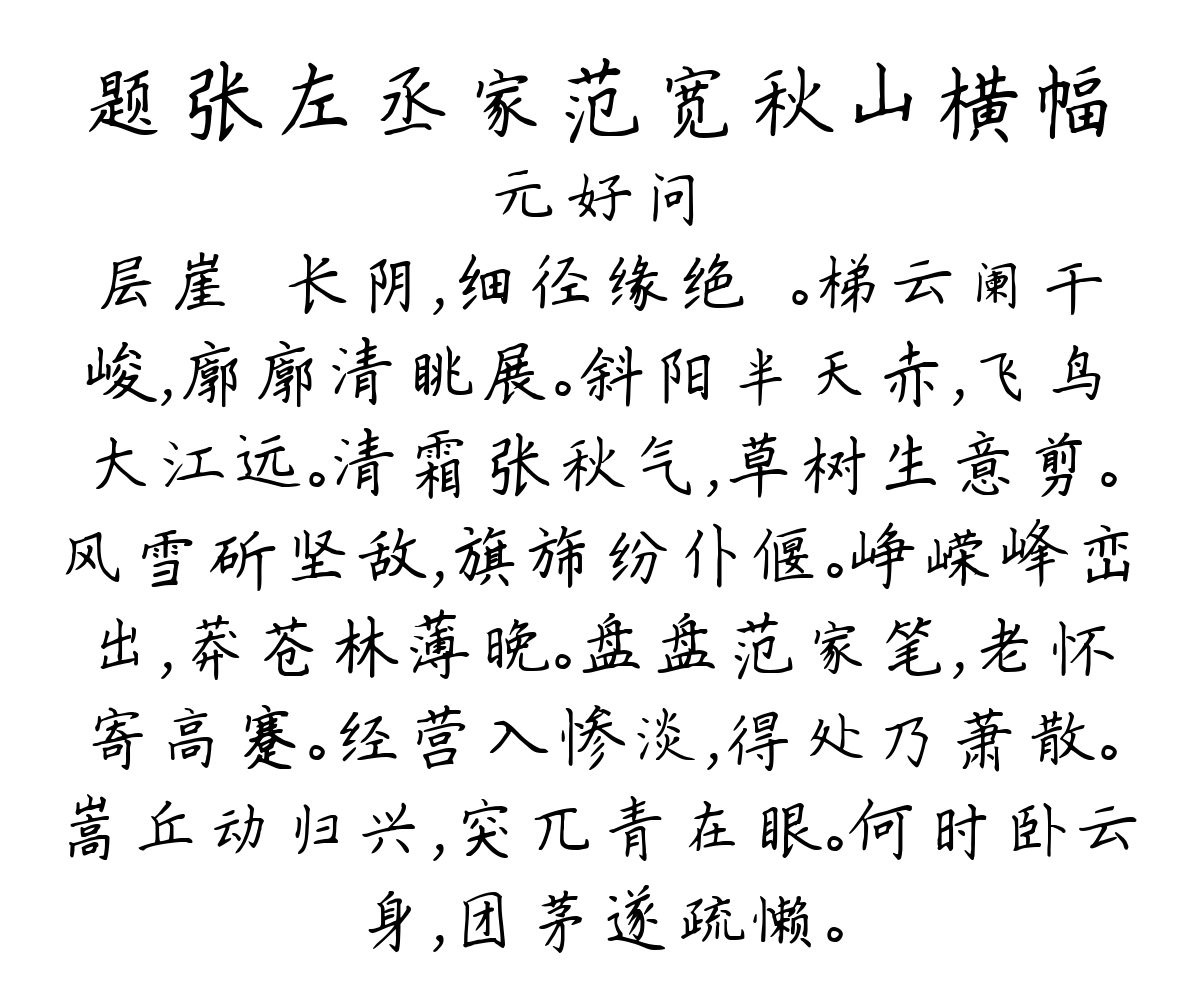 题张左丞家范宽秋山横幅
元好问
层崖 长阴,细径缘绝 。梯云阑干
峻,廓廓清眺展。斜阳半天赤,飞鸟
大江远。清霜张秋气,草树生意剪。
风雪斫坚敌,旗旆纷仆偃。峥嵘峰峦
出,莽苍林薄晚。盘盘范家笔,老怀
寄高蹇。经营入惨淡,得处乃萧散。
嵩丘动归兴,突兀青在眼。何时卧云
身,团茅遂疏懒。